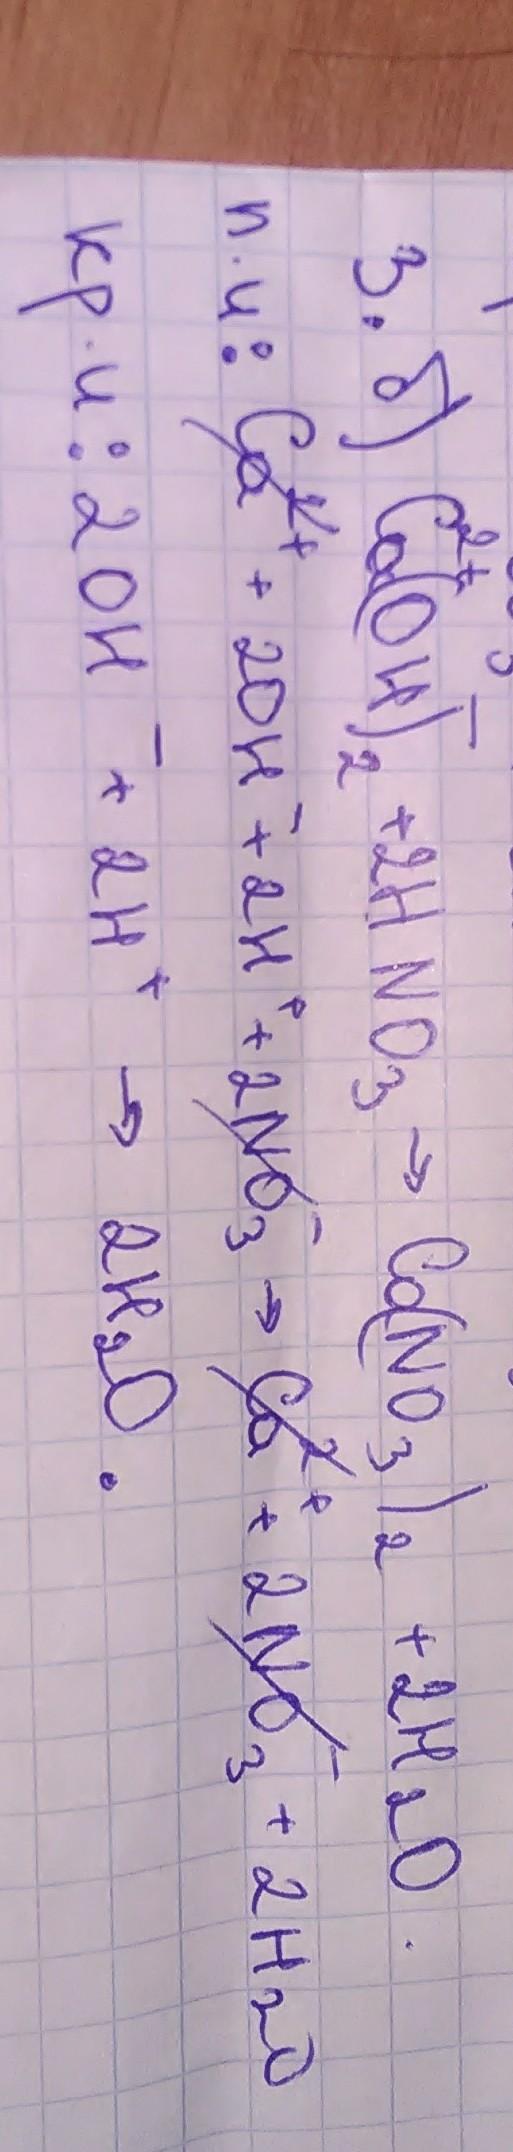 3. б) Ca²⁺(OH)⁻₂ + 2HNO₃ → Ca(NO₃)₂ + 2H₂O.
п.и: Ca²⁺ + 2OH⁻ + 2H⁺ + 2NO₃⁻ → Ca²⁺ + 2NO₃⁻ + 2H₂O
кр.и: 2OH⁻ + 2H⁺ → 2H₂O.